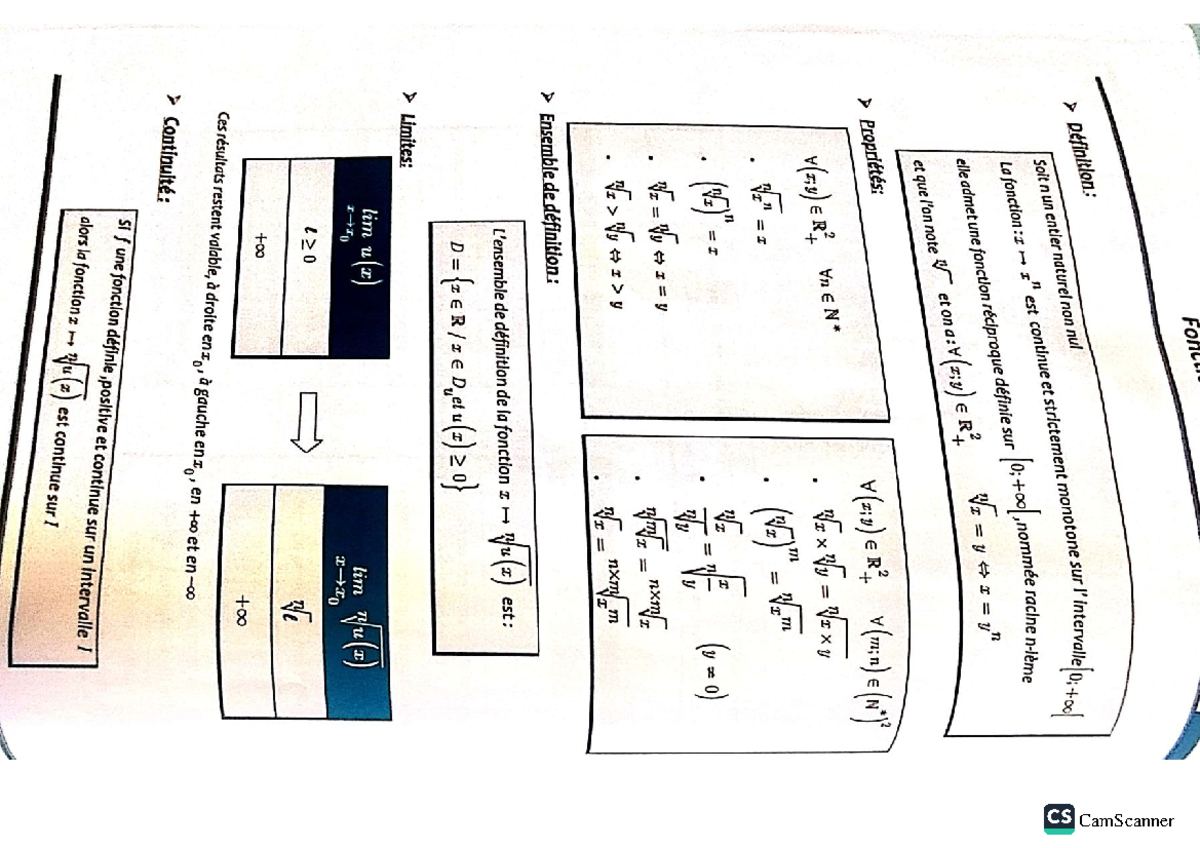 ➤ Définition :
Soit n un entier naturel non nul
La fonction : x ↦ xⁿ est continue et strictement monotone sur l' intervalle [0;+∞[
elle admet une fonction réciproque définie sur [0;+∞[ ,nommée racine n-ième
et que l'on note ⁿ√ et on a : ∀(x;y) ∈ ℝ²₊ ⁿ√x = y ⇔ x = yⁿ
➤ Propriétés:
∀(x;y) ∈ ℝ²₊ ∀n ∈ ℕ*
• ⁿ√(xⁿ) = x
• (ⁿ√x)ⁿ = x
• ⁿ√x = ⁿ√y ⇔ x = y
• ⁿ√x > ⁿ√y ⇔ x > y
∀(x;y) ∈ ℝ²₊ ∀(m;n) ∈ (ℕ*)²
• ⁿ√x × ⁿ√y = ⁿ√(x × y)
• (ⁿ√x)ᵐ = ⁿ√(xᵐ)
• ⁿ√x / ⁿ√y = ⁿ√(x/y) (y = 0)
• ⁿ√(ᵐ√x) = ⁿˣᵐ√x
• ⁿ√x = ⁿˣᵐ√(xᵐ)
➤ Ensemble de définition :
L'ensemble de définition de la fonction x ↦ ⁿ√(u(x)) est :
D = {x ∈ ℝ / x ∈ Dᵤ et u(x) ≥ 0}
➤ Limites:
lim x→x₀ u(x)
ℓ ≥ 0
+∞
lim x→x₀ ⁿ√(u(x))
ⁿ√ℓ
+∞
Ces résultats restent valable, à droite en x₀, à gauche en x₀, en +∞ et en −∞
➤ Continuité :
Si f une fonction définie ,positive et continue sur un intervalle I
alors la fonction x ↦ ⁿ√(u(x)) est continue sur I
CS CamScanner